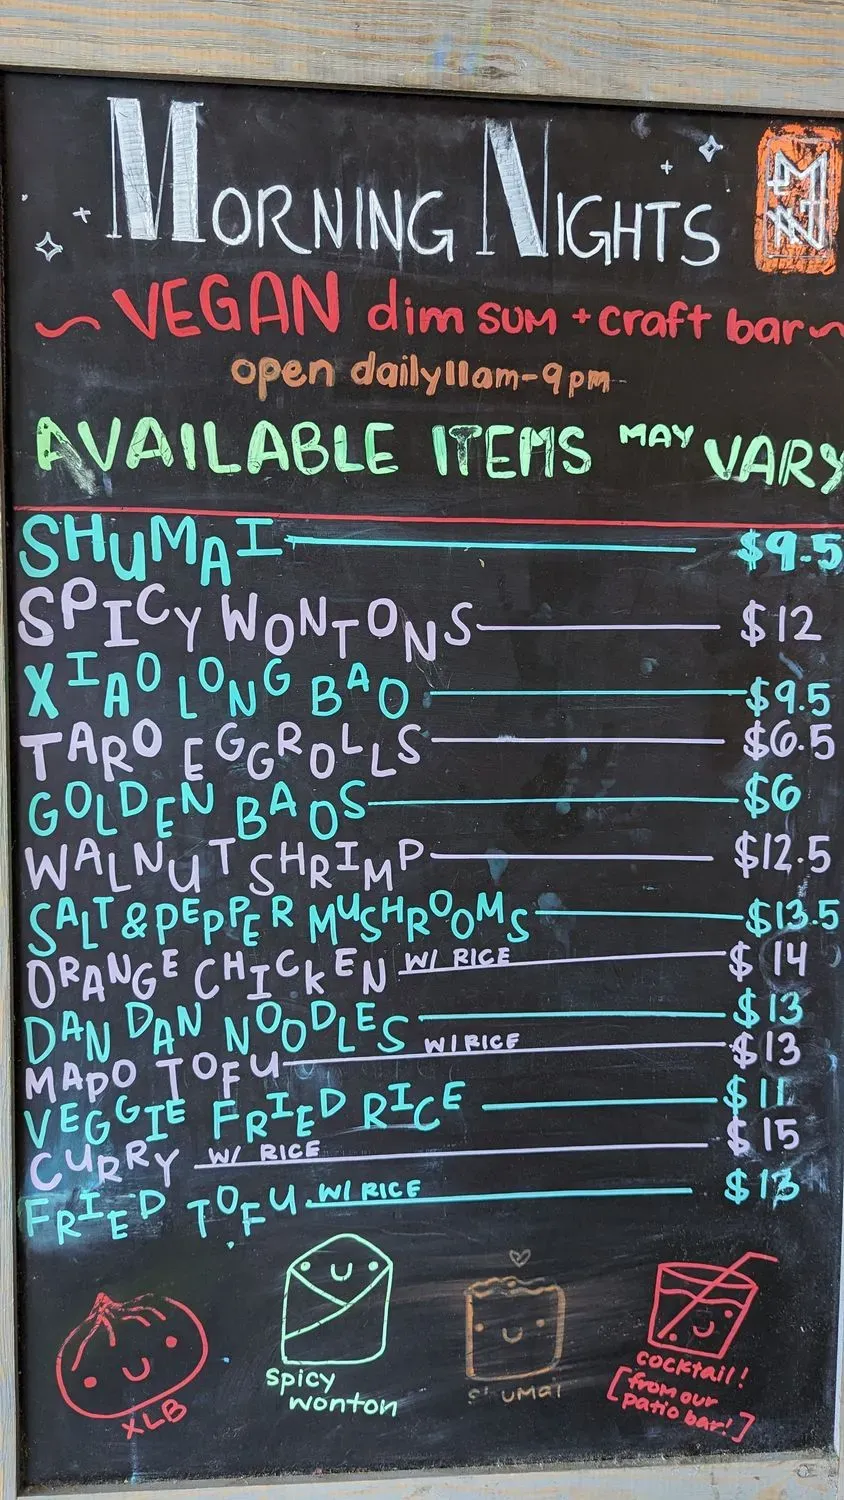 MORNING NIGHTS
VEGAN dim sum + craft bar
open daily 11am-9pm
AVAILABLE ITEMS MAY VARY
SHUMAI $9.5
SPICY WONTONS $12
XIAO LONG BAO $9.5
TARO EGGROLLS $6.5
GOLDEN BAOS $6
WALNUT SHRIMP $12.5
SALT & PEPPER MUSHROOMS $13.5
ORANGE CHICKEN W/ RICE $14
DAN DAN NOODLES $13
MAPO TOFU W/ RICE $13
VEGGIE FRIED RICE $11
CURRY W/ RICE $15
FRIED TOFU W/ RICE $13
XLB
spicy wonton
shumai
cocktail!
[from our
patio bar!]